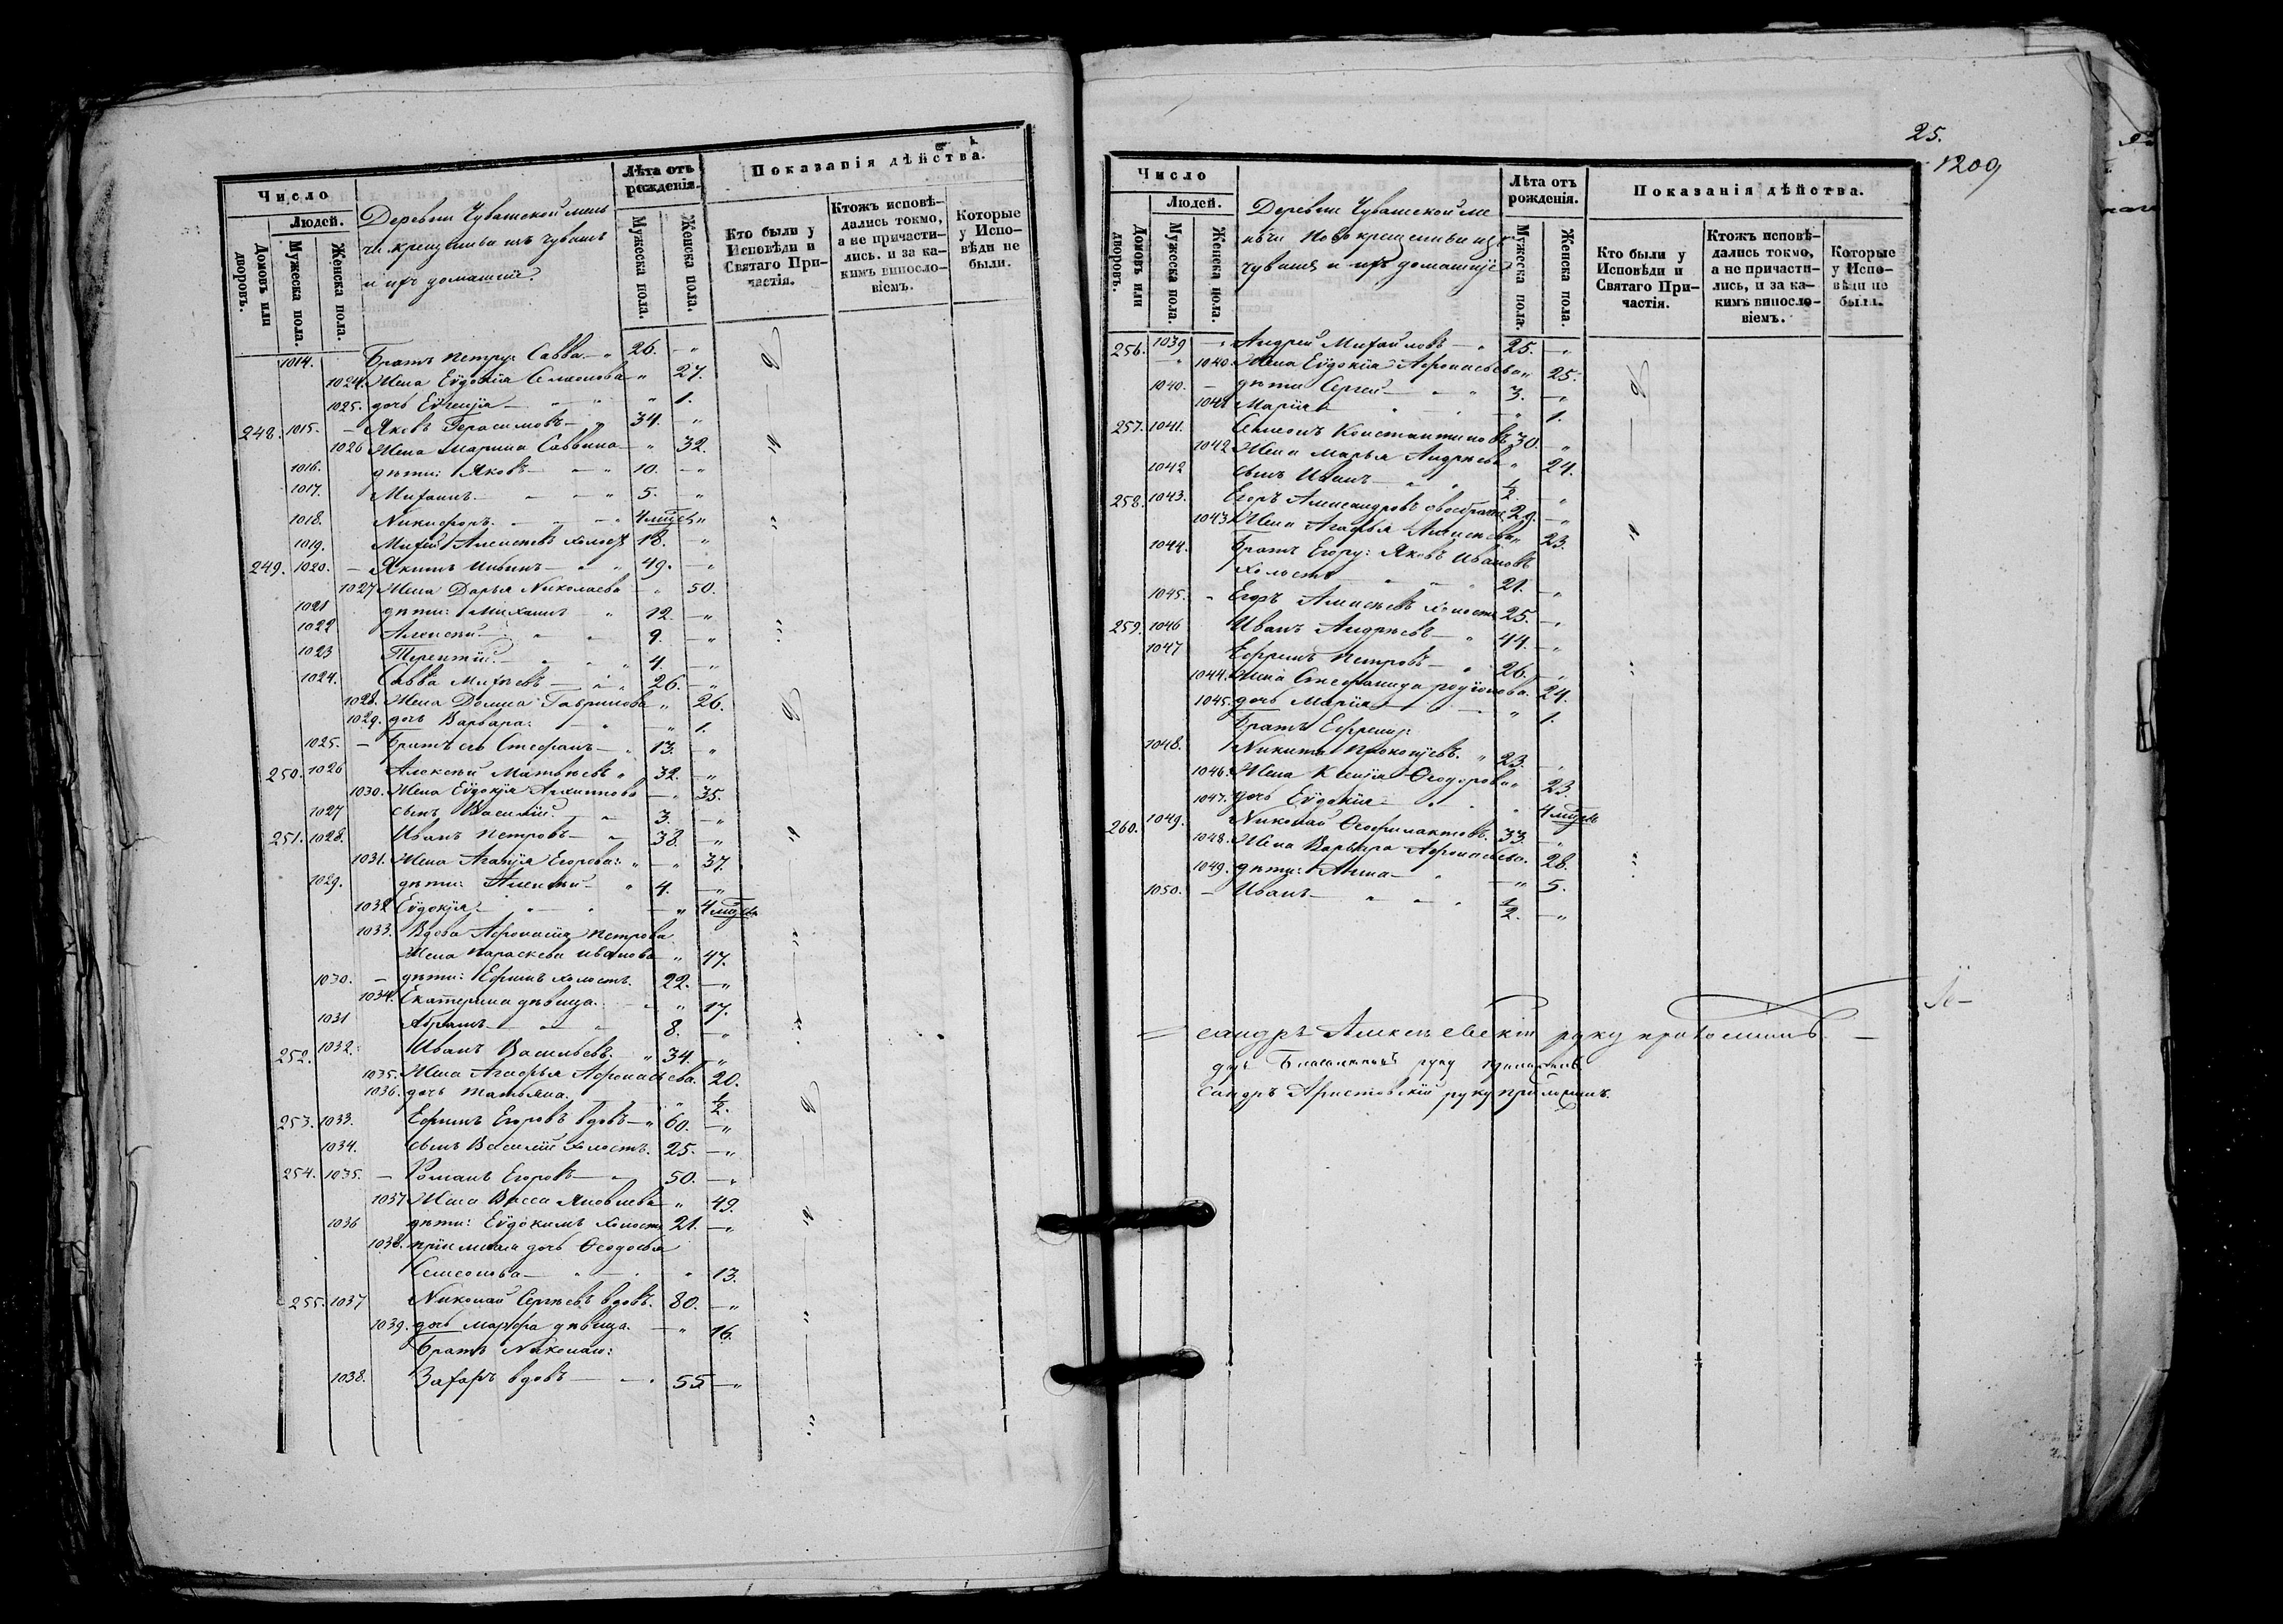 Число
Людей.
Домовъ или дворовъ.
Мужеска пола.
Женска пола.
Деревни Чувашской мен
чи. крещеныи изъ чувашъ
и ихъ домашніи.
Лѣта отъ рожденія.
Мужеска пола.
Женска пола.
Показанія дѣйства.
Кто были у Исповѣди и Святаго Причастія.
Ктожъ исповѣдались токмо, а не причастились. и за какимъ винословіемъ.
Которые у Исповѣди не были.
1014. Братъ Петру: Савва — 26. — „
1024. Жена Еѵдокія Семенова — „ 27.
1025. дочь Еѵгенія — „ 1.
248. 1015. — Яковъ Герасимовъ — 34. — „
1026 Жена Марина Саввина — „ 32.
1016. дѣти: Яковъ — „ 10. — „
1017. Михаилъ — „ 5. — „
1018. Никифоръ — „ 4 мѣся „
1019. Михей Алексѣевъ холост 18. — „
249. 1020. — Якимъ Ивинъ — „ 49. — „
1027 Жена Дарья Николаева — „ 50.
1021 дѣти: Михаилъ — „ 12. — „
1022 Алексѣй — „ 9. — „
1023 Терентій — „ 4. — „
1024. Савва Михѣевъ — „ 26. — „
1028. Жена Домна Гаврилова „ 26.
1029. дочь Варвара: — „ 1.
1025. — Братъ его Стефанъ — 13. — „
250. 1026 Алексѣй Матвѣевъ „ 32. — „
1030. Жена Еѵдокія Архиппова — „ 35.
1027 сынъ Василій. — 3. — „
251. 1028. Иванъ Петровъ — „ 38. — „
1031. Жена Агапія Егорова: „ — „ 37.
1029. дѣти: Алексѣй — „ 4. — „
1032 Еѵдокія — „ — „ 4 мѣся
1033. Вдова Афонасія Петрова
Жена Параскева Иванова — „ 47.
1030. — дѣти: Ефимъ холостъ. 22. — „
1034. Екатерина дѣвица. — „ 17.
1031 Абрамъ — „ 8. — „
252. 1032. Иванъ Васильевъ. „ 34. — „
1035. Жена Агафья Афонасьева. 20.
1036. дочь Татьяна. — „ ½.
253. 1033. Ефимъ Егоровъ вдовъ — „ 60. — „
1034. сынъ Василій холостъ. 25. — „
254. 1035. — Романъ Егоровъ — 50. — „
1037 Жена Васса Яковлева „ 49.
1036 дѣти: Еѵдокимъ холостъ 21. — „
1038. пріемная дочь Ѳеодосья
Семенова — „ — „ 13.
255. 1037 Николай Сергѣевъ вдовъ. 80. — „
1039. дочь Марфа дѣвица. — „ 16.
Братъ Николаю:
1038. Захаръ вдовъ — „ 55 — „
25.
1209
Число
Людей.
Домовъ или дворовъ.
Мужеска пола.
Женска пола.
Деревни Чувашской ме
нчи Новокрещеныи изъ
чувашъ и ихъ домашніе
Лѣта отъ рожденія.
Мужеска пола.
Женска пола.
Показанія дѣйства.
Кто были у Исповѣди и Святаго Причастія.
Ктожъ исповѣдались токмо, а не причастились, и за какимъ винословіемъ.
Которые у Исповѣди не были.
256. 1039 — „ Андрей Михайловъ — „ 25. — „
1040. Жена Еѵдокія Афонасьева „ 25.
1040. — дѣти Сергей — „ 3. — „
1041 Марія — „ 1.
257. 1041. Семенъ Константиновъ 30. „
1042 Жена Марья Андрѣева „ 24.
1042 сынъ Иванъ — „ ½. „
258. 1043. Егоръ Александровъ 29. — „
1043 Жена Агафья Алексѣева „ 23.
1044. Братъ Егору: Яковъ Ивановъ
холостъ — „ 21. — „
1045. — Егоръ Алексѣевъ холостъ 25. — „
259. 1046 Иванъ Андрѣевъ — „ 44. — „
1047 Ефремъ Петровъ — „ 26. — „
1044. Жена Стефанида Родіонова. 24.
1045. дочь Марія — „ 1.
Братъ Ефрему:
1048. Никита Прокопіевъ. „ 23. „
1046. Жена Ксенія Ѳеодорова „ 23
1047. дочь Еѵдокія — „ 4 мѣся
260. 1049. Николай Ѳеофилактовъ. 33. „
1048. Жена Варвара Афонасьева. 28.
1049. дѣти: Анна — „ — „ 5.
1050. — Иванъ — „ ½. — „
сандръ Алексѣевскій руку приложилъ. —
руку приложилъ
сандръ Аристовскій руку приложилъ.